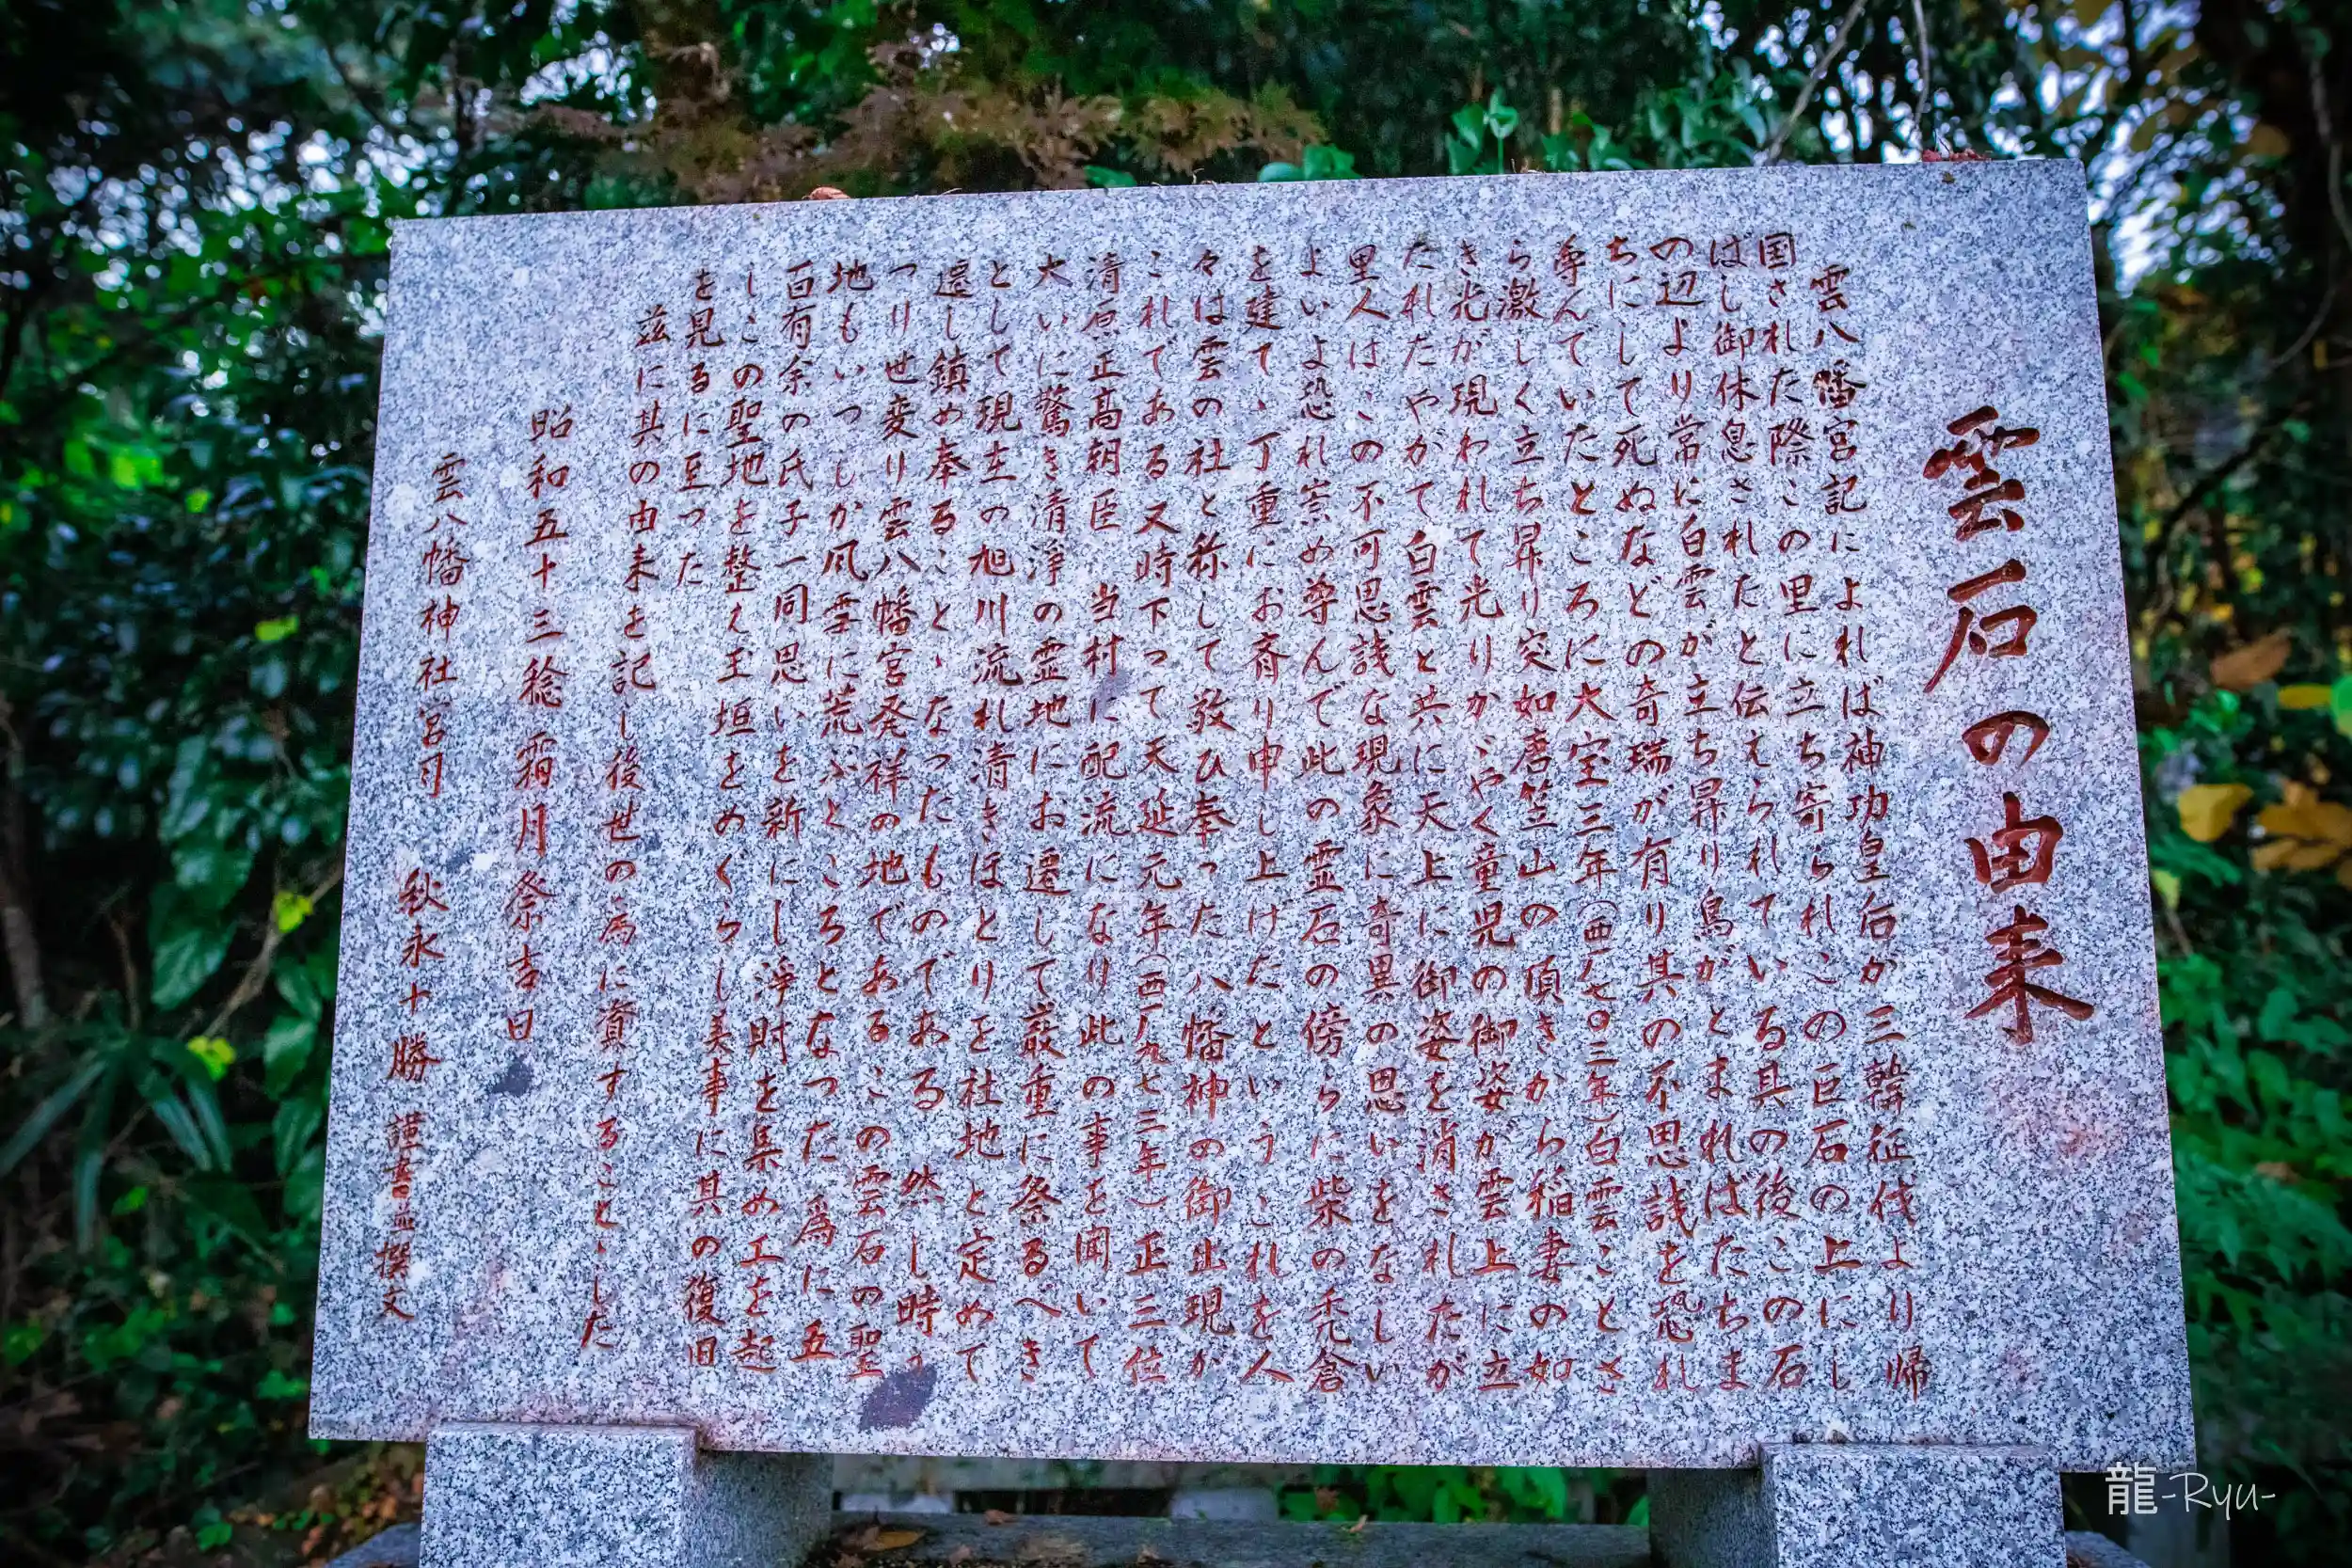 雲石の由来
雲八幡宮記によれば神功皇后が三韓征伐より帰
国された際この里に立ち寄られこの巨石の上にし
ばし御休息されたと伝えられている其の後この石
の辺より常に白雲が立ち昇り鳥がとまればたちま
ちにして死ぬなどの奇瑞が有り其の不思議を恐れ
尊んでいたところに大宝三年(西ノ七〇三年)白雲ことさ
ら激しく立ち昇り突如唐笠山の頂きから稲妻の如
き光が現われて光りかゞやく童児の御姿が雲上に立
たれたやがて白雲と共に天上に御姿を消されたが
里人はこの不可思議な現象に奇異の思いをなしい
よいよ恐れ崇め尊んで此の霊石の傍らに柴の禿倉
を建て、丁重にお斉り申し上げたというこれを人
々は雲の社と称して敬ひ奉った八幡神の御出現が
これである又時下って天延元年(西ノ九七三年)正三位
清原正高朝臣 当村に配流になり此の事を聞いて
大いに驚き清浄の霊地にお遷して厳重に祭るべき
として現在の旭川流れ清きほとりを社地と定めて
遷し鎮め奉ることゝなったものである 然し時が
つり世変り雲八幡宮発祥の地であるこの雲石の聖
地もいつしか風雪に荒ぶところとなった 為に五
百有余の氏子一同思いを新にし浄財を集め工を起
しこの聖地を整え玉垣をめぐらし美事に其の復旧
を見るに至った
茲に其の由来を記し後世の為に資することゝした
昭和五十三稔 霜月祭吉日
雲八幡神社宮司 秋永十勝 謹書並撰文
龍-Ryu-